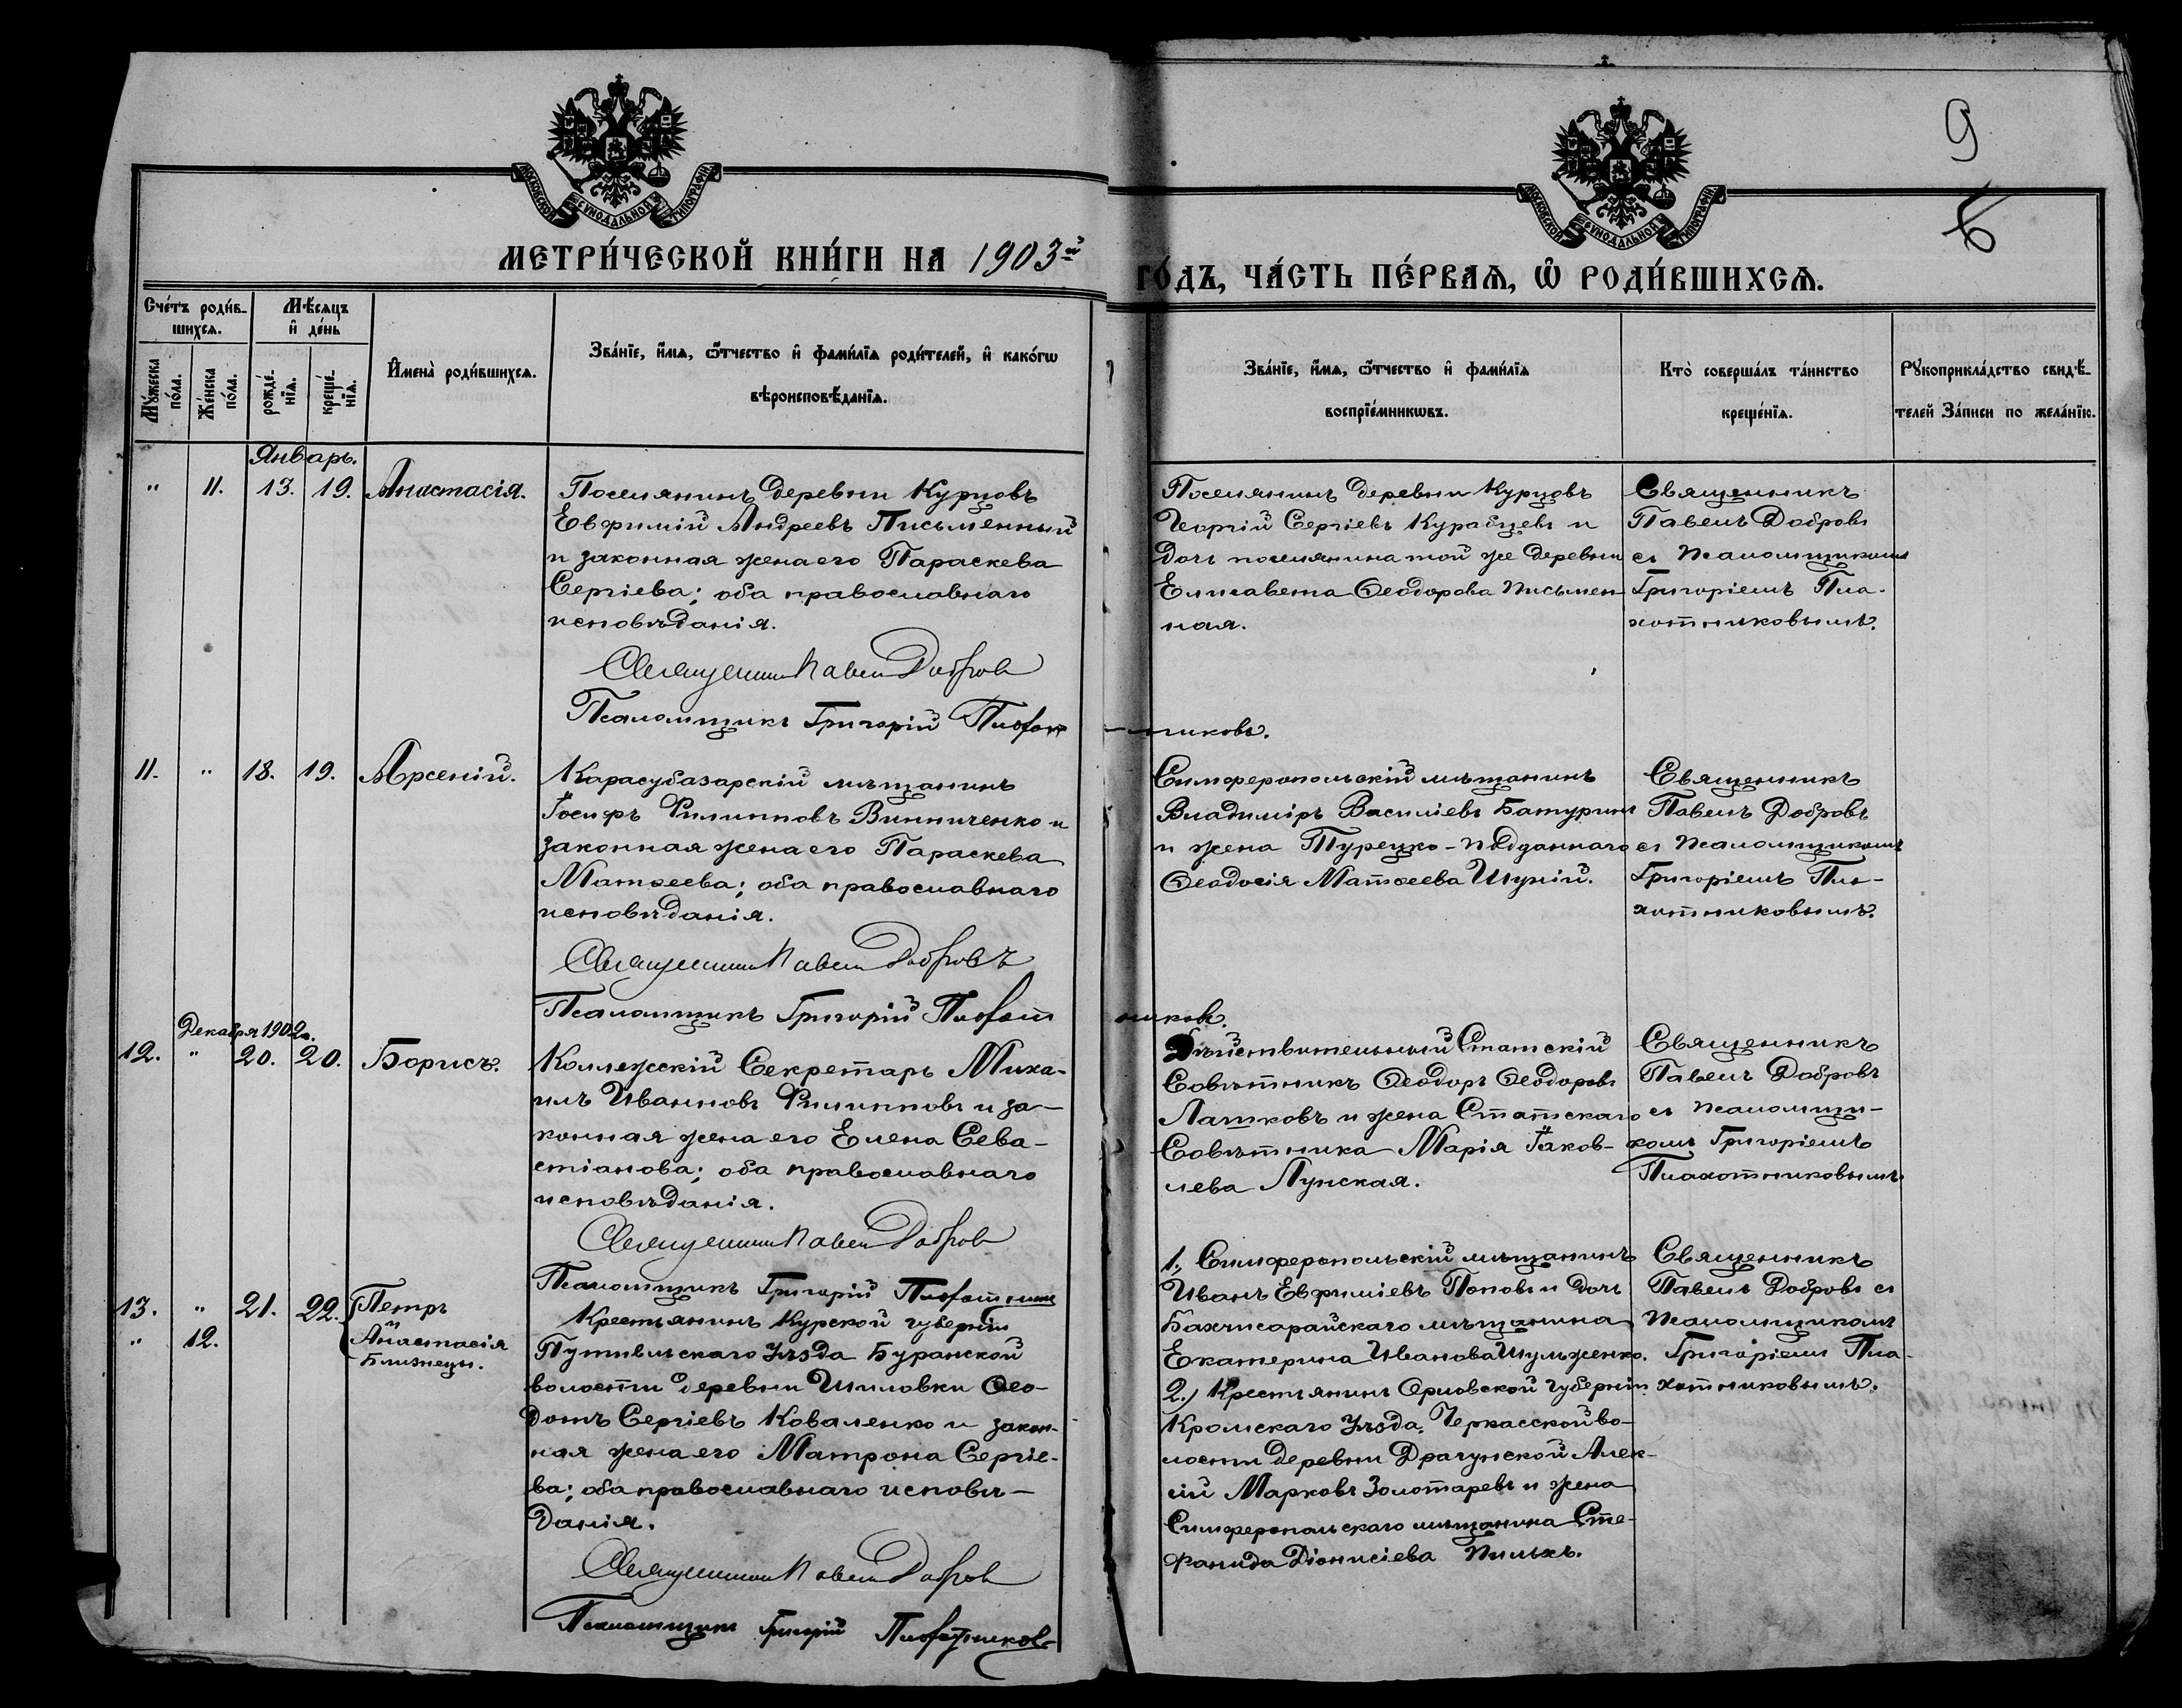 9
МОСКОВСКОЙ СѴНОДАЛЬНОЙ ТИПОГРАФІИ
МОСКОВСКОЙ СѴНОДАЛЬНОЙ ТИПОГРАФІИ
МЕТРИ́ЧЕСКОЙ КНИ́ГИ НА 1903й
ГО́ДЪ, ЧА́СТЬ ПЕ́РВАѦ, Ѡ РОДИ́ВШИХСѦ.
Сче́тъ роди́в-
шихсѧ.
Мѣ́сѧцъ
и де́нь
Мꙋ́жеска
по́ла.
Же́нска
по́ла.
рожде́-
нїѧ.
креще́-
нїѧ.
Имена̀ роди́вшихсѧ.
Зва́нїе, и́мѧ, ѻ́тчество и фами́лїѧ роди́телей, и како́гѡ
вѣроисповѣ́данїѧ.
Зва́нїе, и́мѧ, ѻ́тчество и фами́лїѧ
воспрїе́мникѡвъ.
Кто̀ соверша́лъ та́инство
креще́нїѧ.
Рꙋкоприкла́дство свидѣ́-
телей За́писи по жела́нїю.
Январь.
" 11. 13. 19. Анастасія.
Поселянинъ деревни Курцовъ
Евфимій Андреевъ Письменный
и законная жена его Параскева
Сергіева; оба православнаго
исповѣданія.
Священникъ Павелъ Добровъ
Псаломщикъ Григорій Плохот-
никовъ.
Поселянинъ деревни Курцовъ
Георгій Сергіевъ Курабцевъ и
дочь поселянина той же деревни
Елисавета Ѳеодорова Письмен-
ная.
Священникъ
Павелъ Добровъ
съ псаломщикомъ
Григоріемъ Пло-
хотниковымъ.
11. " 18. 19. Арсеній.
Карасубазарскій мѣщанинъ
Іосифъ Филипповъ Винниченко и
законная жена его Параскева
Матѳеева; оба православнаго
исповѣданія.
Священникъ Павелъ Добровъ
Псаломщикъ Григорій Плохот
никовъ.
Симферопольскій мѣщанинъ
Владиміръ Василіевъ Батуринъ
и жена Турецко-подданнаго
Ѳеодосія Матѳеева
Священникъ
Павелъ Добровъ
съ псаломщикомъ
Григоріемъ Пло-
хотниковымъ.
Декабря 1902г.
12. " 20. 20. Борисъ.
Коллежскій Секретарь Миха-
илъ Ивановъ Филипповъ и за-
конная жена его Елена Сева-
стіанова; оба православнаго
исповѣданія.
Священникъ Павелъ Добровъ
Псаломщикъ Григорій Плохотников
Дѣйствительный Статскій
Совѣтникъ Ѳеодоръ Ѳеодоровъ
Лашковъ и жена Статскаго
Совѣтника Марія Іаков-
лева Лунская.
Священникъ
Павелъ Добровъ
съ псаломщи-
комъ Григоріемъ
Плохотниковымъ.
13. " 21. 22. Петръ
" 12. и Анастасія
близнецы.
Крестьянинъ Курской губерніи
Путивльскаго уѣзда Бурынской
волости деревни Шиловки Ѳео-
дотъ Сергіевъ Коваленко и закон-
ная жена его Матрона Сергіе-
ва; оба православнаго исповѣ-
данія.
Священникъ Павелъ Добровъ
Псаломщикъ Григорій Плохотниковъ
1., Симферопольскій мѣщанинъ
Иванъ Евфиміевъ Поповъ и дочь
Бахчисарайскаго мѣщанина
Екатерина Иванова Шульженко.
2.) Крестьянинъ Орловской губерніи
Кромскаго уѣзда, Черкасской во-
лости деревни Драгунской Алек-
сій Марковъ Золотаревъ и жена
Симферопольскаго мѣщанина Сте-
фанида Діонисіева
Священникъ
Павелъ Добровъ съ
псаломщикомъ
Григоріемъ Пло-
хотниковымъ.